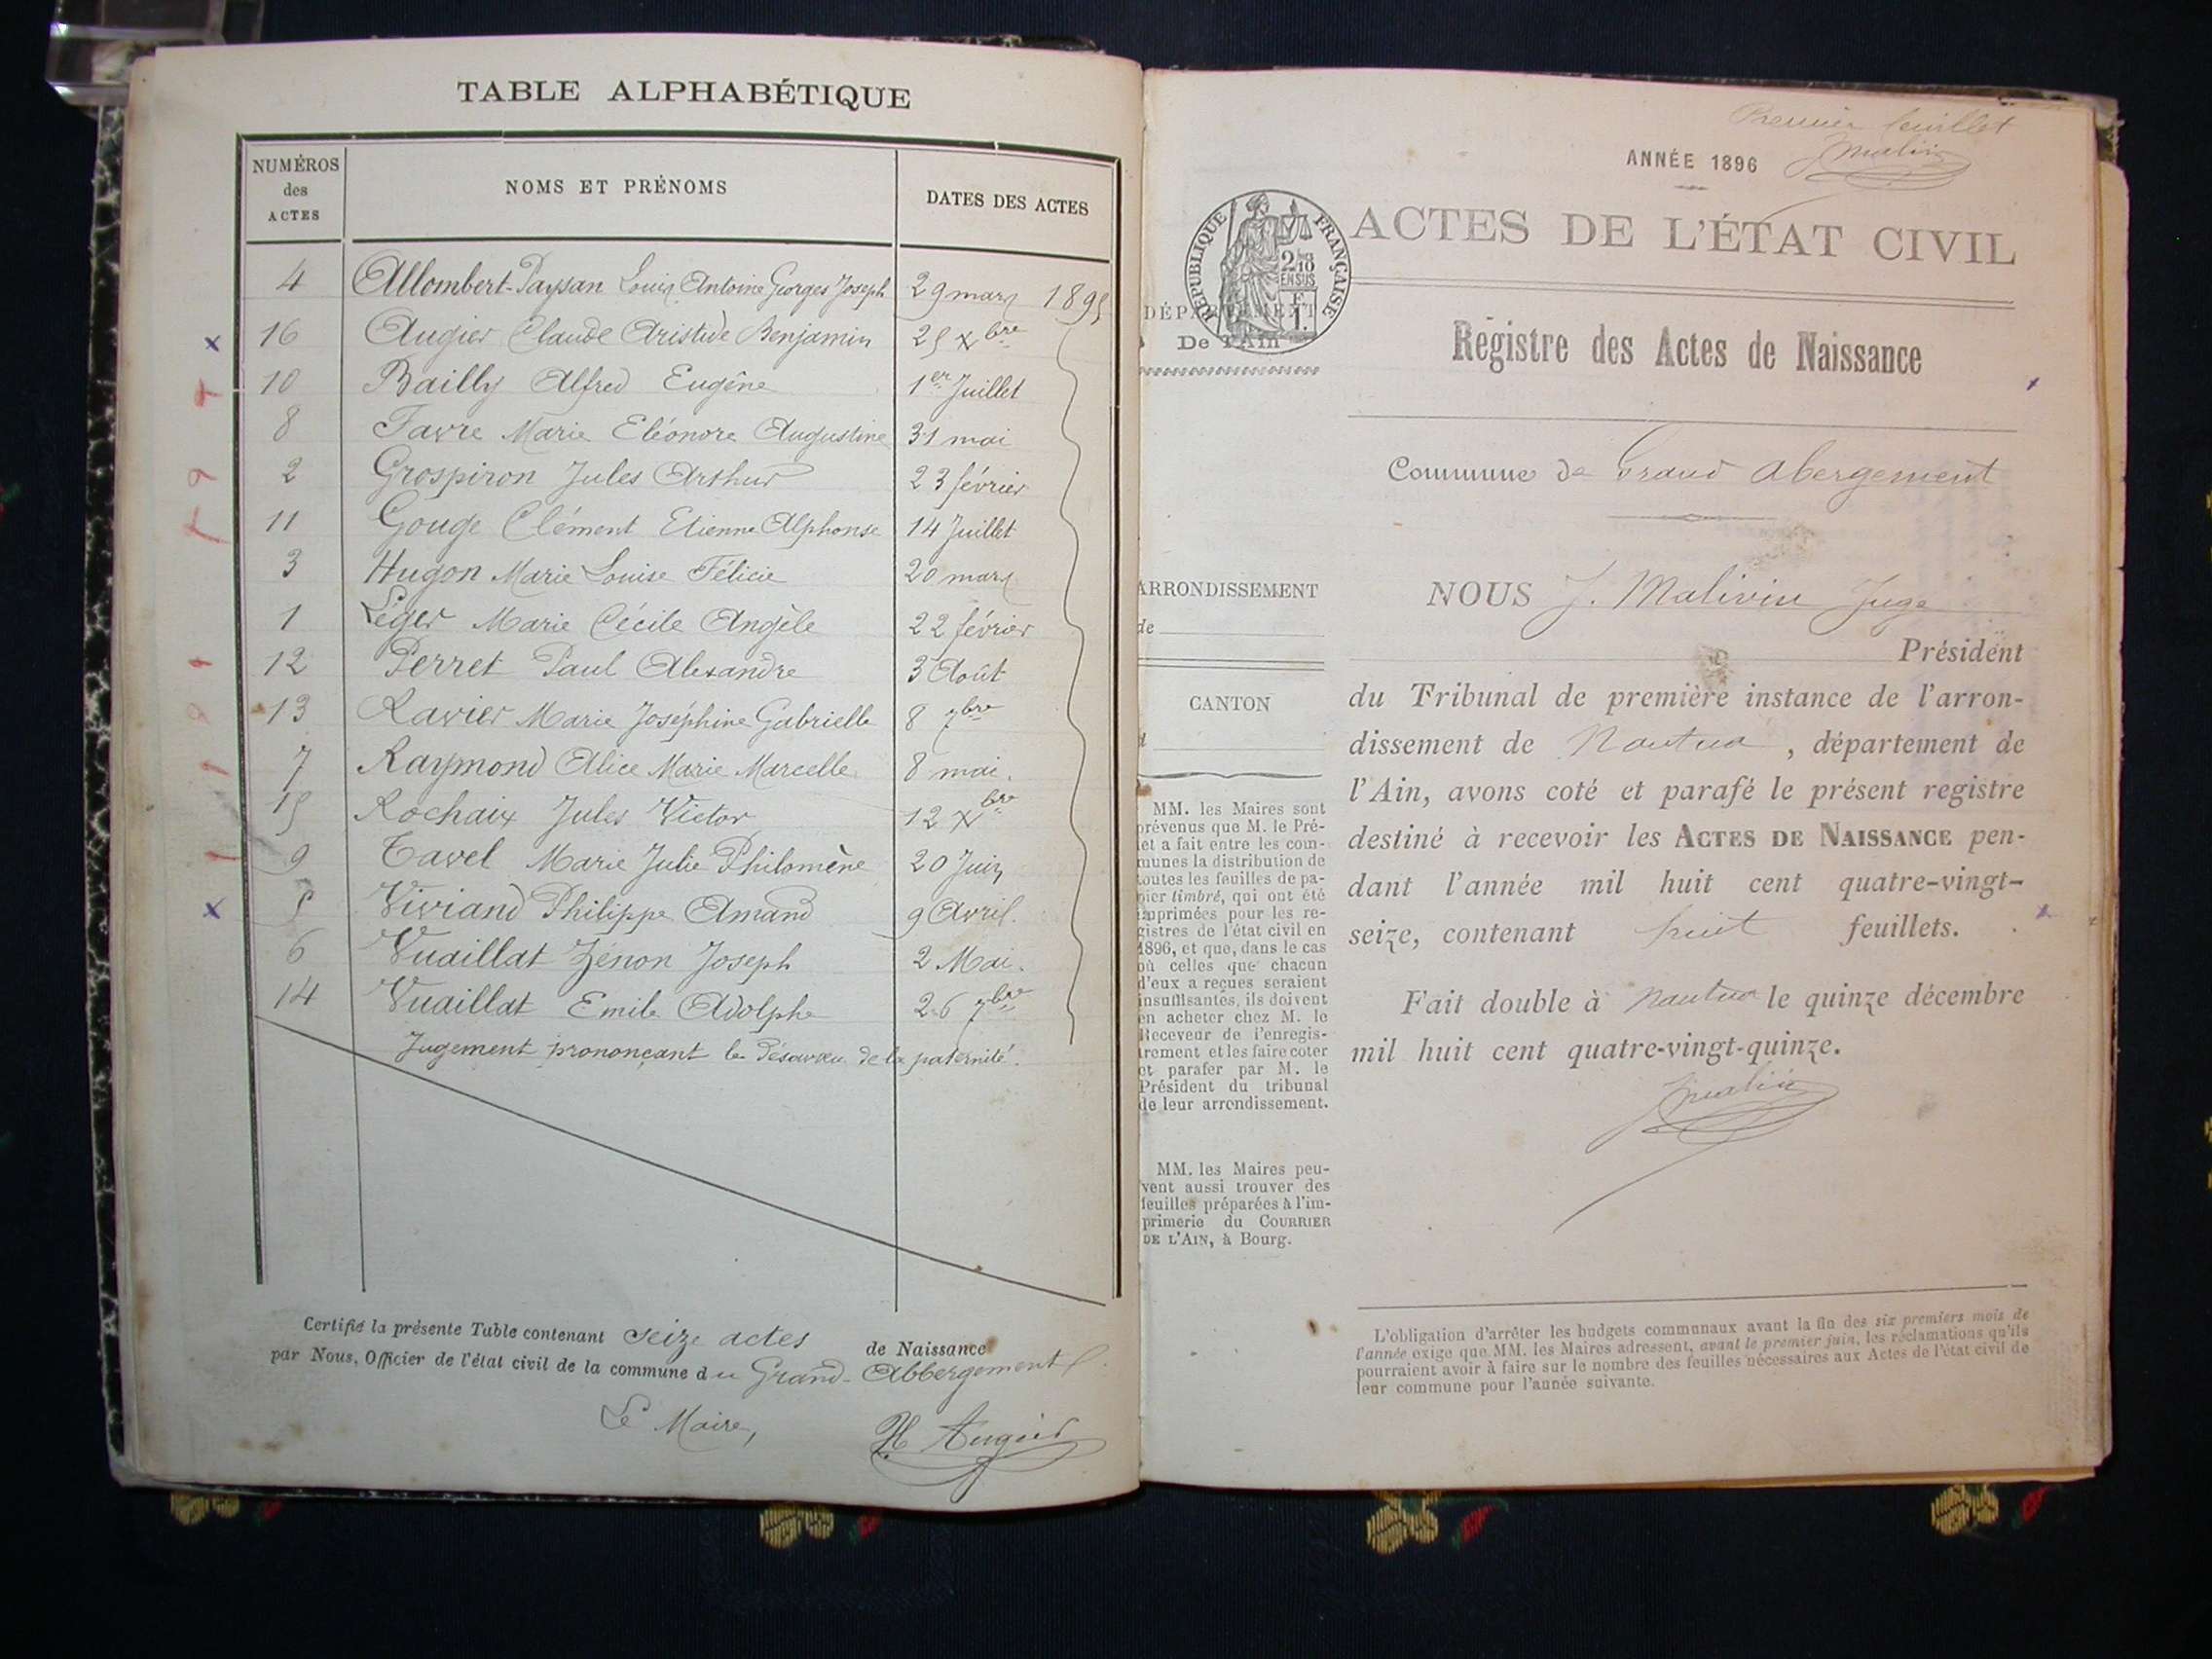 TABLE ALPHABÉTIQUE
NUMÉROS des ACTES NOMS ET PRÉNOMS DATES DES ACTES
4 Allombert-Paysan Louis Antoine Georges Joseph 29 mars 1895
16 Augier Claude Aristide Benjamin 25 Xbre
10 Bailly Alfred Eugène 1er Juillet
8 Favre Marie Eléonore Augustine 31 mai
2 Grospiron Jules Arthur 23 février
11 Gouge Clément Etienne Alphonse 14 Juillet
3 Hugon Marie Louise Félicie 20 mars
1 Léger Marie Cécile Angèle 22 février
12 Perret Paul Alexandre 3 Août
13 Ravier Marie Joséphine Gabrielle 8 7bre
7 Raymond Alice Marie Marcelle 8 mai.
15 Rochaix Jules Victor 12 Xbre
9 Tavel Marie Julie Philomène 20 Juin
5 Viviand Philippe Amand 9 Avril.
6 Vuaillat Zénon Joseph 2 Mai.
14 Vuaillat Emile Adolphe 26 7bre
Jugement prononçant le désaveu de la paternité.
Certifié la présente Table contenant seize actes de Naissance
par Nous, Officier de l'état civil de la commune du Grand-Abbergement
Le Maire,
H Augier
Premier feuillet
ANNÉE 1896
ACTES DE L'ÉTAT CIVIL
RÉPUBLIQUE FRANÇAISE
DÉPARTEMENT
De l'Ain
Régistre des Actes de Naissance
Commune de Grand Abergement
NOUS J. Malivin Juge
Président
du Tribunal de première instance de l'arron-
dissement de Nantua, département de
l'Ain, avons coté et parafé le présent registre
destiné à recevoir les ACTES DE NAISSANCE pen-
dant l'année mil huit cent quatre-vingt-
seize, contenant huit feuillets.
Fait double à Nantua le quinze décembre
mil huit cent quatre-vingt-quinze.
ARRONDISSEMENT
de
CANTON
MM. les Maires sont
prévenus que M. le Pré-
fet a fait entre les com-
munes la distribution de
toutes les feuilles de pa-
pier timbré, qui ont été
imprimées pour les re-
gistres de l'état civil en
1896, et que, dans le cas
où celles que chacun
d'eux a reçues seraient
insuffisantes, ils doivent
en acheter chez M. le
Receveur de l'enregis-
trement et les faire coter
et parafer par M. le
Président du tribunal
de leur arrondissement.
MM. les Maires peu-
vent aussi trouver des
feuilles préparées à l'im-
primerie du COURRIER
DE L'AIN, à Bourg.
L'obligation d'arrêter les budgets communaux avant la fin des six premiers mois de
l'année exige que MM. les Maires adressent, avant le premier juin, les réclamations qu'ils
pourraient avoir à faire sur le nombre des feuilles nécessaires aux Actes de l'état civil de
leur commune pour l'année suivante.